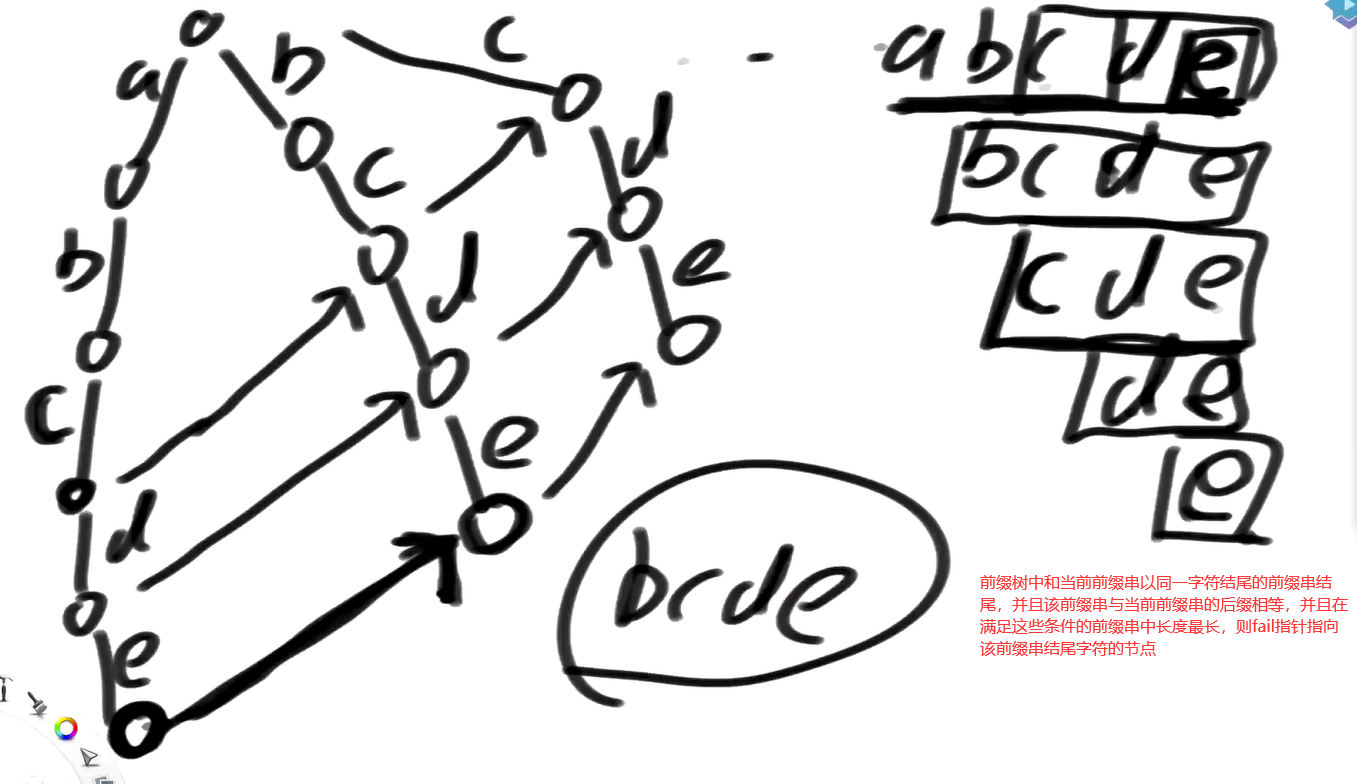 c
a
b
abcde
d
c
bcde
b
d
e
cde
c
e
de
d
e
bcde
e
前缀树中和当前前缀串以同一字符结尾的前缀串结
尾，并且该前缀串与当前前缀串的后缀相等，并且在
满足这些条件的前缀串中长度最长，则fail指针指向
该前缀串结尾字符的节点